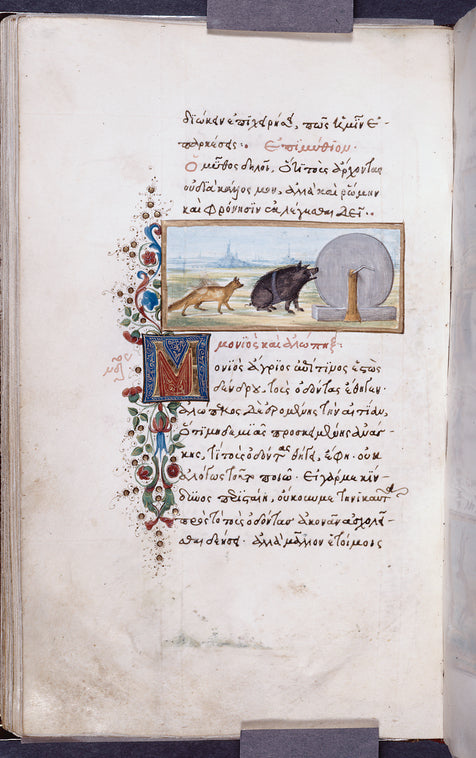 διώκειν ἐπιχειρήσῃ, πῶς ἡμῖν ἐ-
παρκέσεις. Ἐπιμύθιον.
Ὁ μῦθος δηλοῖ, ὅτι τοὺς ἄρχοντας
οὐ διὰ κάλλος μόνον, ἀλλὰ καὶ ῥώμην
καὶ φρόνησιν ἐκλέγεσθαι δεῖ.
μονιὸς καὶ ἀλώπηξ.
Μονιὸς ἄγριος ἐπί τινος ἑστὼς
δένδρου, τοὺς ὀδόντας ἔθηγεν.
ἀλώπεκος δὲ ἐρομένης τὴν αἰτίαν,
ὅτι μηδεμιᾶς προκειμένης ἀνάγ-
κης, τοὺς ὀδόντας θήγει, ἔφη. οὐκ
ἀλόγως τοῦτο ποιῶ. εἰ γάρ με κίν-
δυνος περισταίη, οὐκ ἐμὲ τηνικαῦτα
πρὸς τὸ τοὺς ὀδόντας ἀκονᾶν ἀσχολεῖ-
σθαι δεήσει. ἀλλὰ μᾶλλον ἑτοίμοις